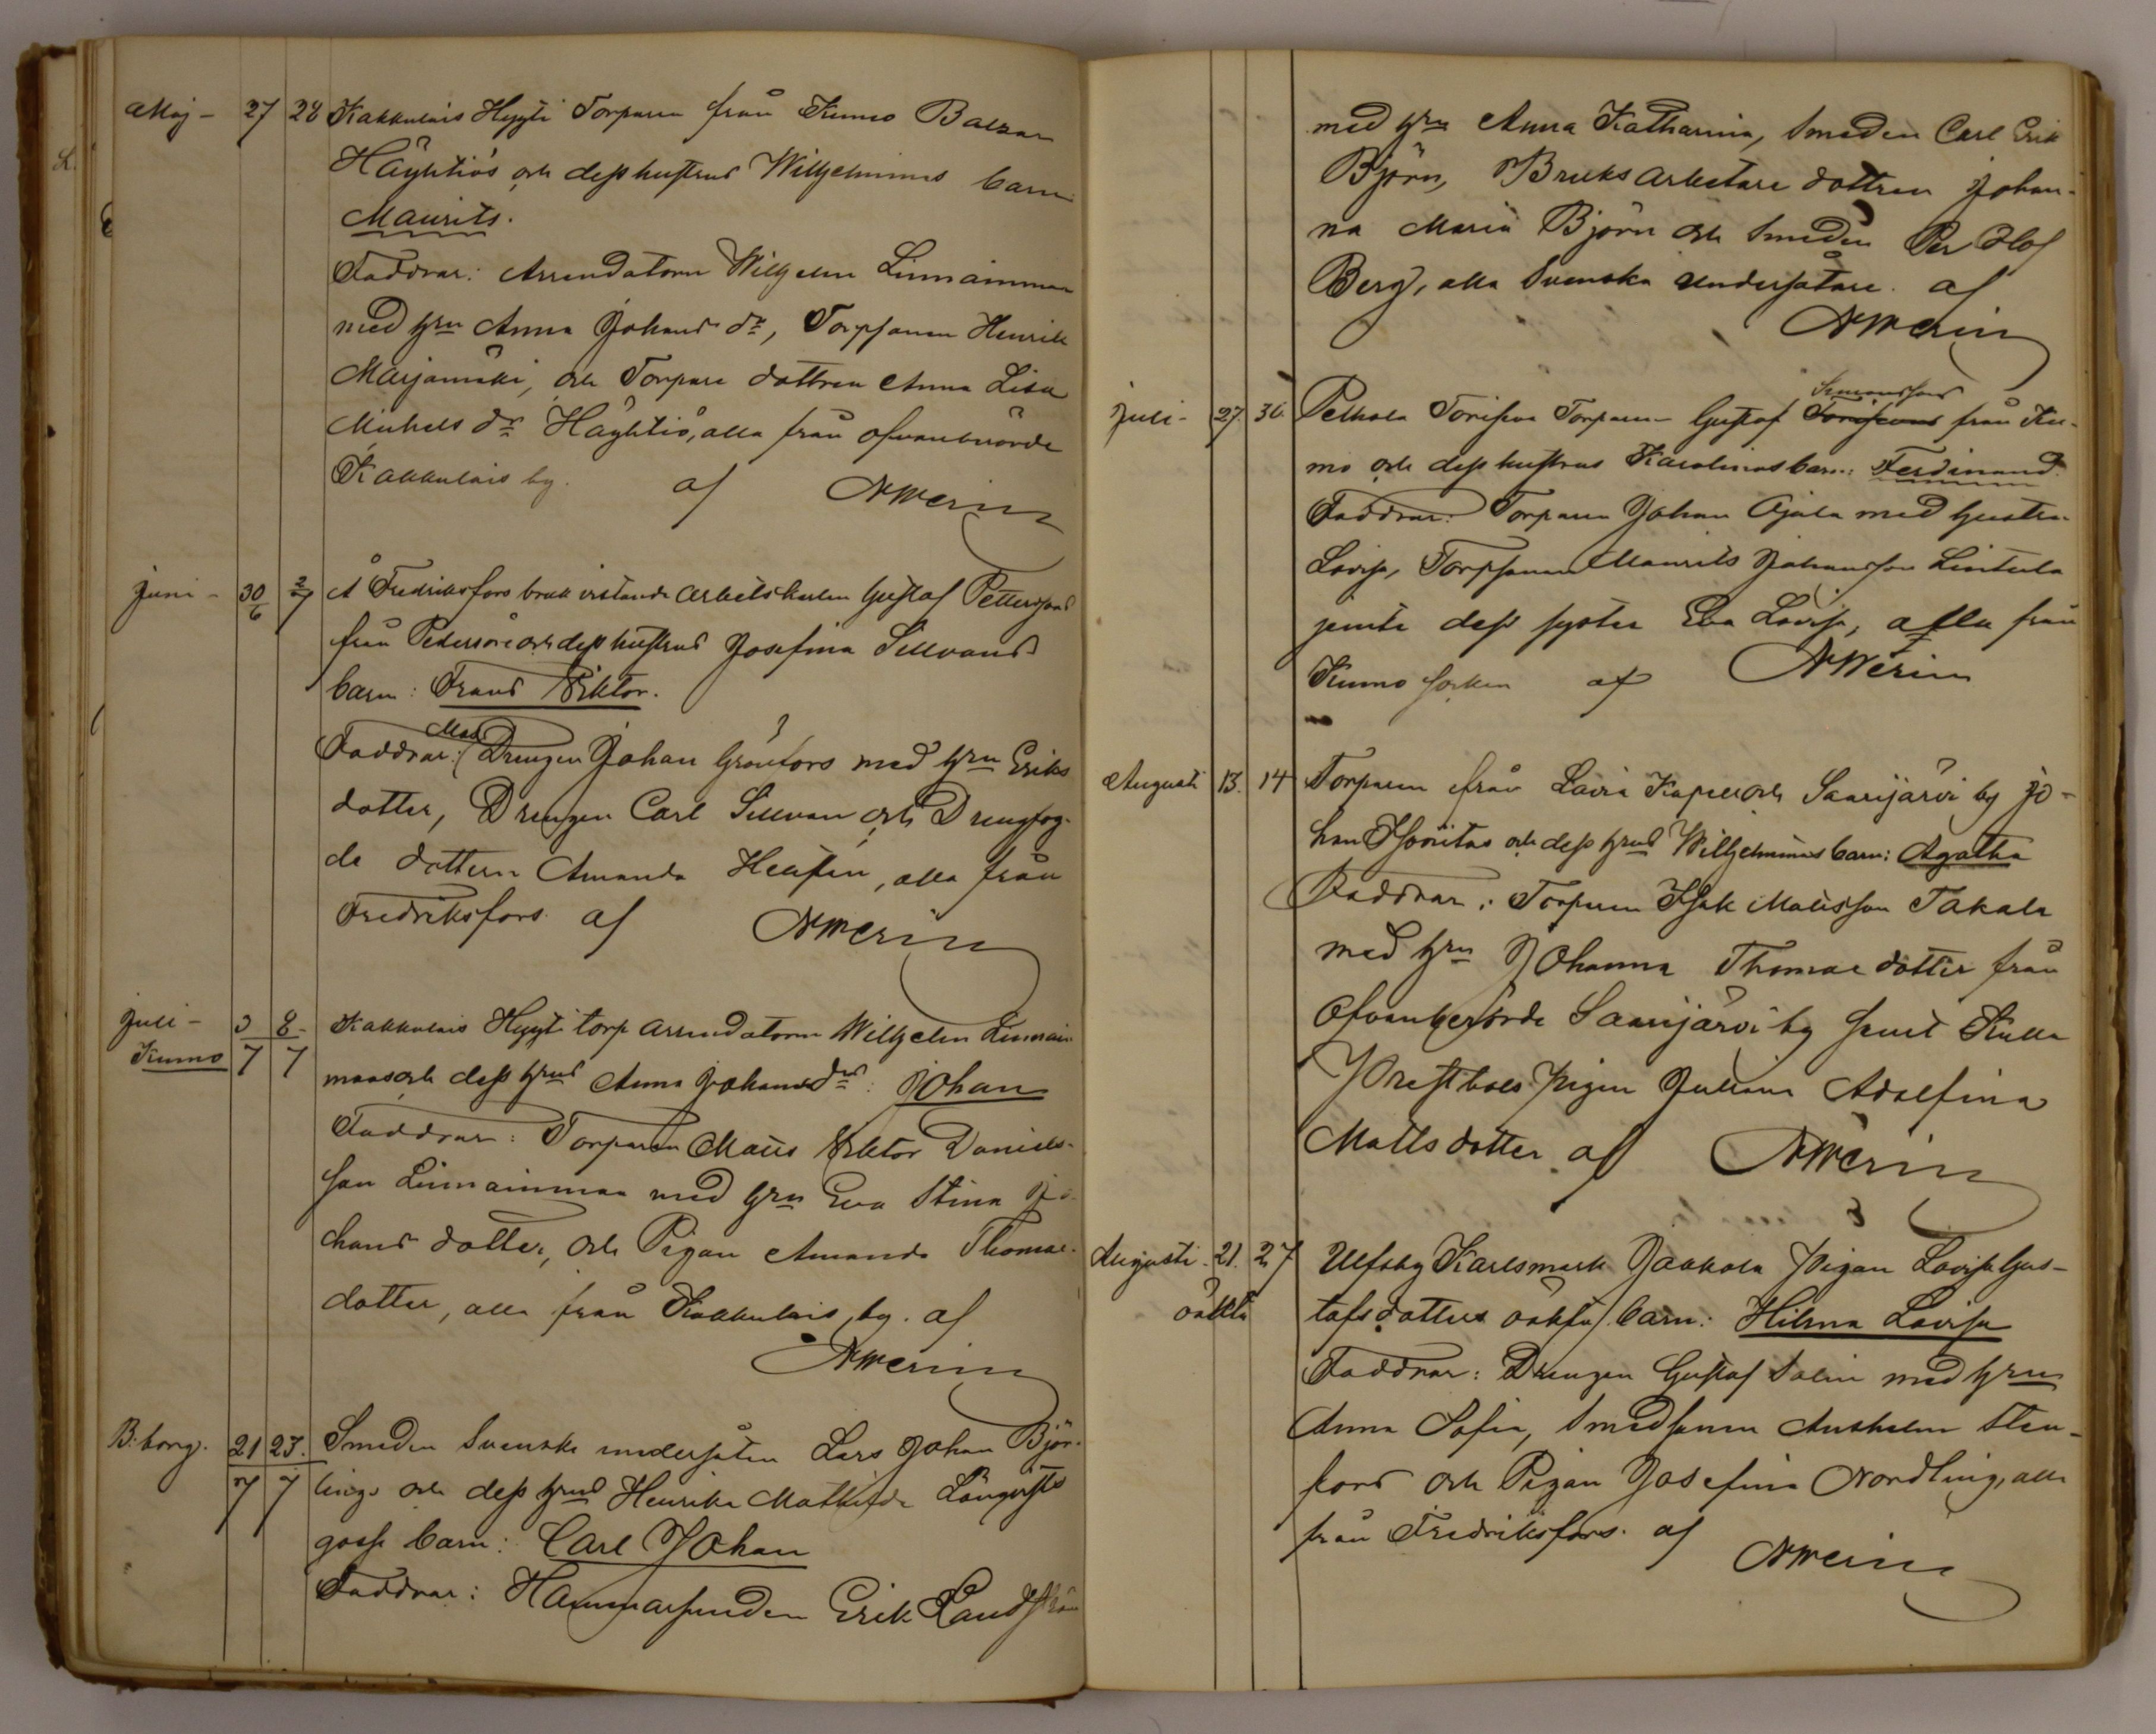 Maj - 27 28 Kakkulais Hyyti Torparen från Kumo Balzar
Häyhtiös och dess hustrus Wilhelminas barn
Maurits.
Faddrar: Arrendatorn Wilhelm Linnainmaa
med hru Anna Johans dr, Torpsonen Henrik
Marjamäki, och Torpare dottren Anna Lisa
Michels dr Häyhtiö, alla från ofvanberörde
Kakkulais by. af NMerin
Juni - 30/6 2/7 Å Fredriksfors bruk vistande Arbetskarlen Gustaf Petterssons
från Pedersöre och dess hustrus Josefina Sillvans
barn: Frans Viktor.
Faddrar: Drengen Johan Grönfors med hru Eriks
dotter, Drengen Carl Sillvan och Drengfog-
de dottern Amanda , alla från
Fredriksfors. af NMerin
Juli - 3/7 8/7 Kakkulais Hyyti torp arrendatorn Wilhelm Linnain-
Kumo
maas och dess hrus Anna Johans drs: Johan
Faddrar: Torparen Matts Viktor Daniels-
son Linnainmaa med hru Eva Stina Jo-
hans dotter, och Pigan Amanda Thomae-
dotter, alla från Kakkulais by. af
NMerin
B:borg. 21/7 23/7 Smeden Svenske undersåten Lars Johan Björ-
lings och dess hrus Henrika Mathilda Långqvists
goss barn: Carl Johan
Faddrar: Hammarsmeden Erik Landström
med hru Anna Katharina, Smeden Carl Erik
Björn, Bruksarbetare dottren Johan-
na Maria Björn och Smeden Per Olof
Berg, alla Svenska undersåtare. af
NMerin
Juli - 27. 30. Pelhola Toriseva Torparen Gustaf Simonssons från Ku-
mo och dess hustrus Karolinas barn: Ferdinand.
Faddrar: Torparen Johan Ojala med hustru
Lovisa, Torpsonen Maurits Johansson Lintula
jemte dess syster Eva Lovisa, alla från
Kumo socken af NMerin
Augusti 13. 14 Torparen från Lavia Kapell och Saarijärvi by Jo-
han Isoviitas och dess hrus Wilhelminas barn: Agatha
Faddrar: Torparen Isak Matisson Takala
med hru Johanna Thomae dotter från
Ofvanberörde Saarijärvi by samt Kulla
Prestbols pigan Juliana Adolfina
Matts dotter. af NMerin
Augusti. 21. 27 Ulfsby Karlsmark Jaakola Pigan Lovisa Gus-
oäkta tafsdotters oäkta barn: Hilma Lovisa
Faddrar: Drengen Gustaf Salin med hru
Anna Sofia, Smedsonen Anshelm Sten-
fors och Pigan Josefina Nordling, alla
från Fredriksfors. af NMerin